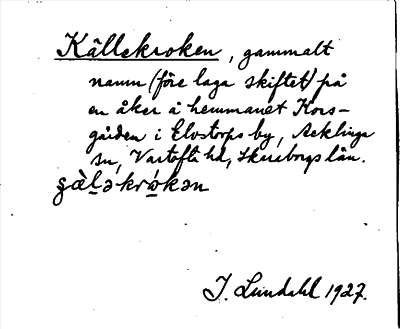 Källekroken, gammalt
namn (före laga skiftet) på
en åker å hemmanet Kors-
gården i Elvstorps by, Acklinga
sn, Vartofta hd, Skaraborgs län.
I. Lundahl 1927.